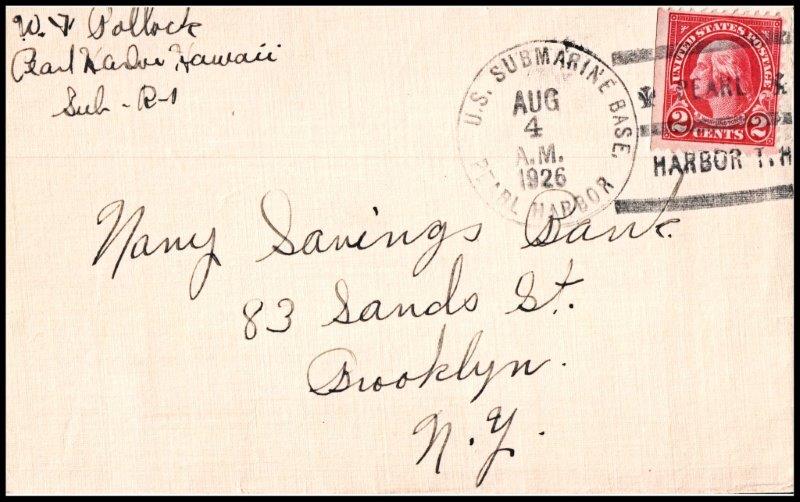 W. F Pollock
Pearl Harbor Hawaii
Sub - R-1
U.S. SUBMARINE BASE,
AUG
4
A.M.
1926
PEARL HARBOR
UNITED STATES POSTAGE
PEARL
WASHINGTON
2 CENTS 2
HARBOR T.H
Navy Savings Bank
83 Sands St.
Brooklyn.
N.Y.